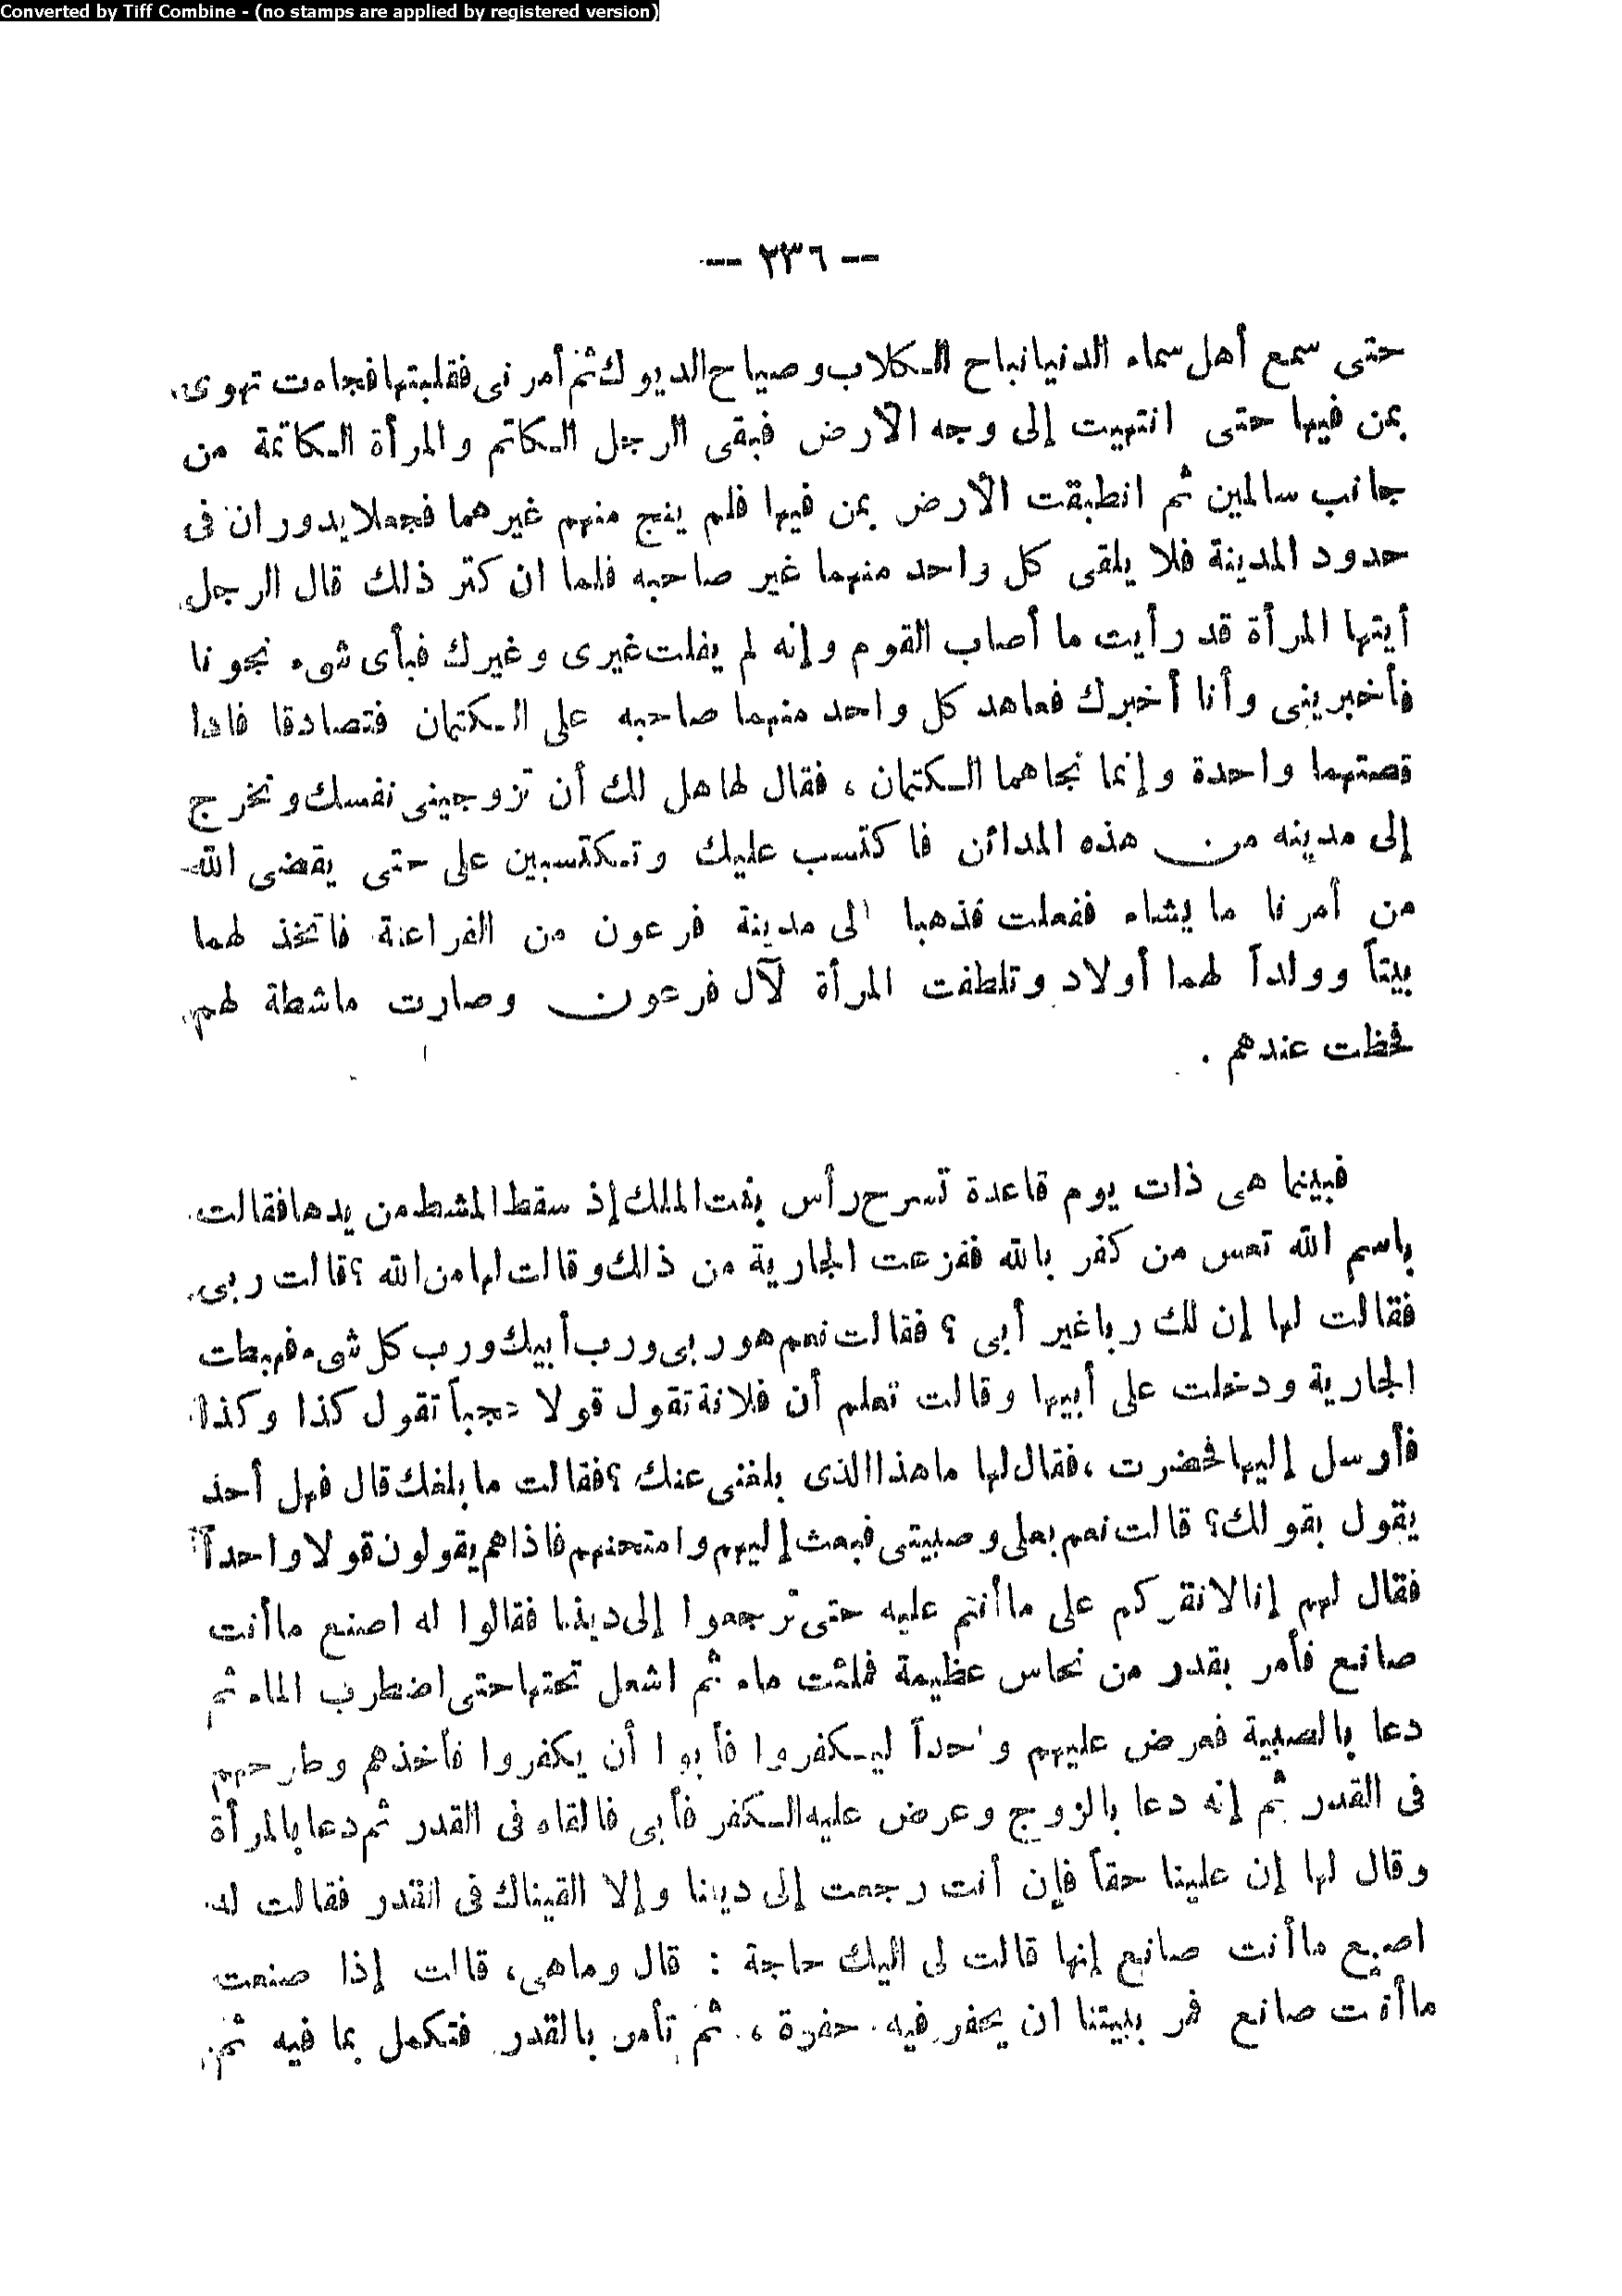 Converted by Tiff Combine - (no stamps are applied by registered version)
-- ٢٣٦ --
حتى سمع أهل سماء الدنيا نباح الكلاب وصياح الديوك ثم أمرنى فقلبتها فجاءت تهوى
بمن فيها حتى انتهيت إلى وجه الأرض فبقى الرجل الكاتم والمرأة الكاتمة من
جانب سالمين ثم انطبقت الأرض بمن فيها فلم ينج منهم غيرهما فجعلا يدوران فى
حدود المدينة فلا يلقى كل واحد منهما غير صاحبه فلما ان كتر ذلك قال الرجل
أيتها المرأة قد رأيت ما أصاب القوم وإنه لم يفلت غيرى وغيرك فبأى شىء نجونا
فأخبرينى وأنا أخبرك فعاهد كل واحد منهما صاحبه على الكتمان فتصادقا فاذا
قصتهما واحدة وإنما نجاهما الكتمان ، فقال لها هل لك أن تزوجينى نفسك ونخرج
إلى مدينه من هذه المدائن فاكتسب عليك وتكتسبين على حتى يقضى الله
من أمرنا ما يشاء ففعلت فذهبا الى مدينة فرعون من الفراعنة فاتخذ لهما
بيتاً وولداً لهما أولاد وتلطفت المرأة لآل فرعون وصارت ماشطة لهم
فحظت عندهم .
فبينما هى ذات يوم قاعدة تسرح رأس بنت الملك إذ سقط المشط من يدها فقالت
باسم الله تعس من كفر بالله ففزعت الجارية من ذلك وقالت لها من الله ؟ قالت ربى
فقالت لها إن لك ربا غير أبى ؟ فقالت نعم هو ربى ورب أبيك ورب كل شىء فهبطت
الجارية ودخلت على أبيها وقالت تعلم أن فلانة تقول قولا عجباً تقول كذا وكذا
فأرسل إليها فحضرت ، فقال لها ما هذا الذى بلغنى عنك ؟ فقالت ما بلغك قال فهل أحد
يقول بقولك ؟ قالت نعم بعلى وصبيتى فبعث إليهم وامتحنهم فاذا هم يقولون قولا واحداً
فقال لهم إنا لا نقركم على ما أنتم عليه حتى ترجعوا إلى ديننا فقالوا له اصنع ما أنت
صانع فأمر بقدر من نحاس عظيمة فملئت ماء ثم اشعل تحتها حتى اضطرب الماء ثم
دعا بالصبية فعرض عليهم واحداً ليكفروا فأبوا أن يكفروا فأخذهم وطرحهم
فى القدر ثم إنه دعا بالزوج وعرض عليه الكفر فأبى فالقاه فى القدر ثم دعا بالمرأة
وقال لها إن علينا حقاً فإن أنت رجعت إلى ديننا وإلا القيناك فى القدر فقالت له
اصنع ما أنت صانع إنها قالت لى اليك حاجة : قال وماهى، قالت إذا صنعت
ما أنت صانع فمر ببيتنا ان يحفر فيه حفرة ، ثم تأمر بالقدر فتكمل بما فيه ثم